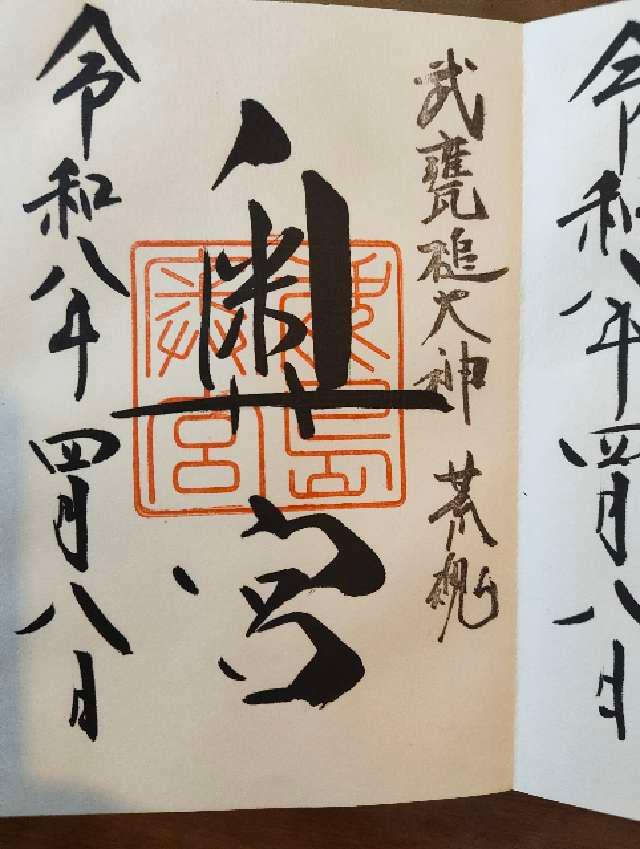 令和八年四月八日
武甕槌大神 荒魂
奥宮
鹿島奥宮
令和八年四月八日